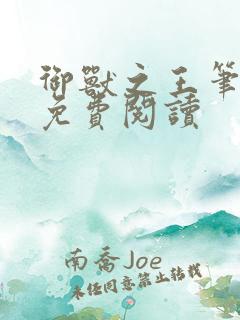 御獸之王筆
免費閱讀
南喬Joe
未經同意禁止轉載